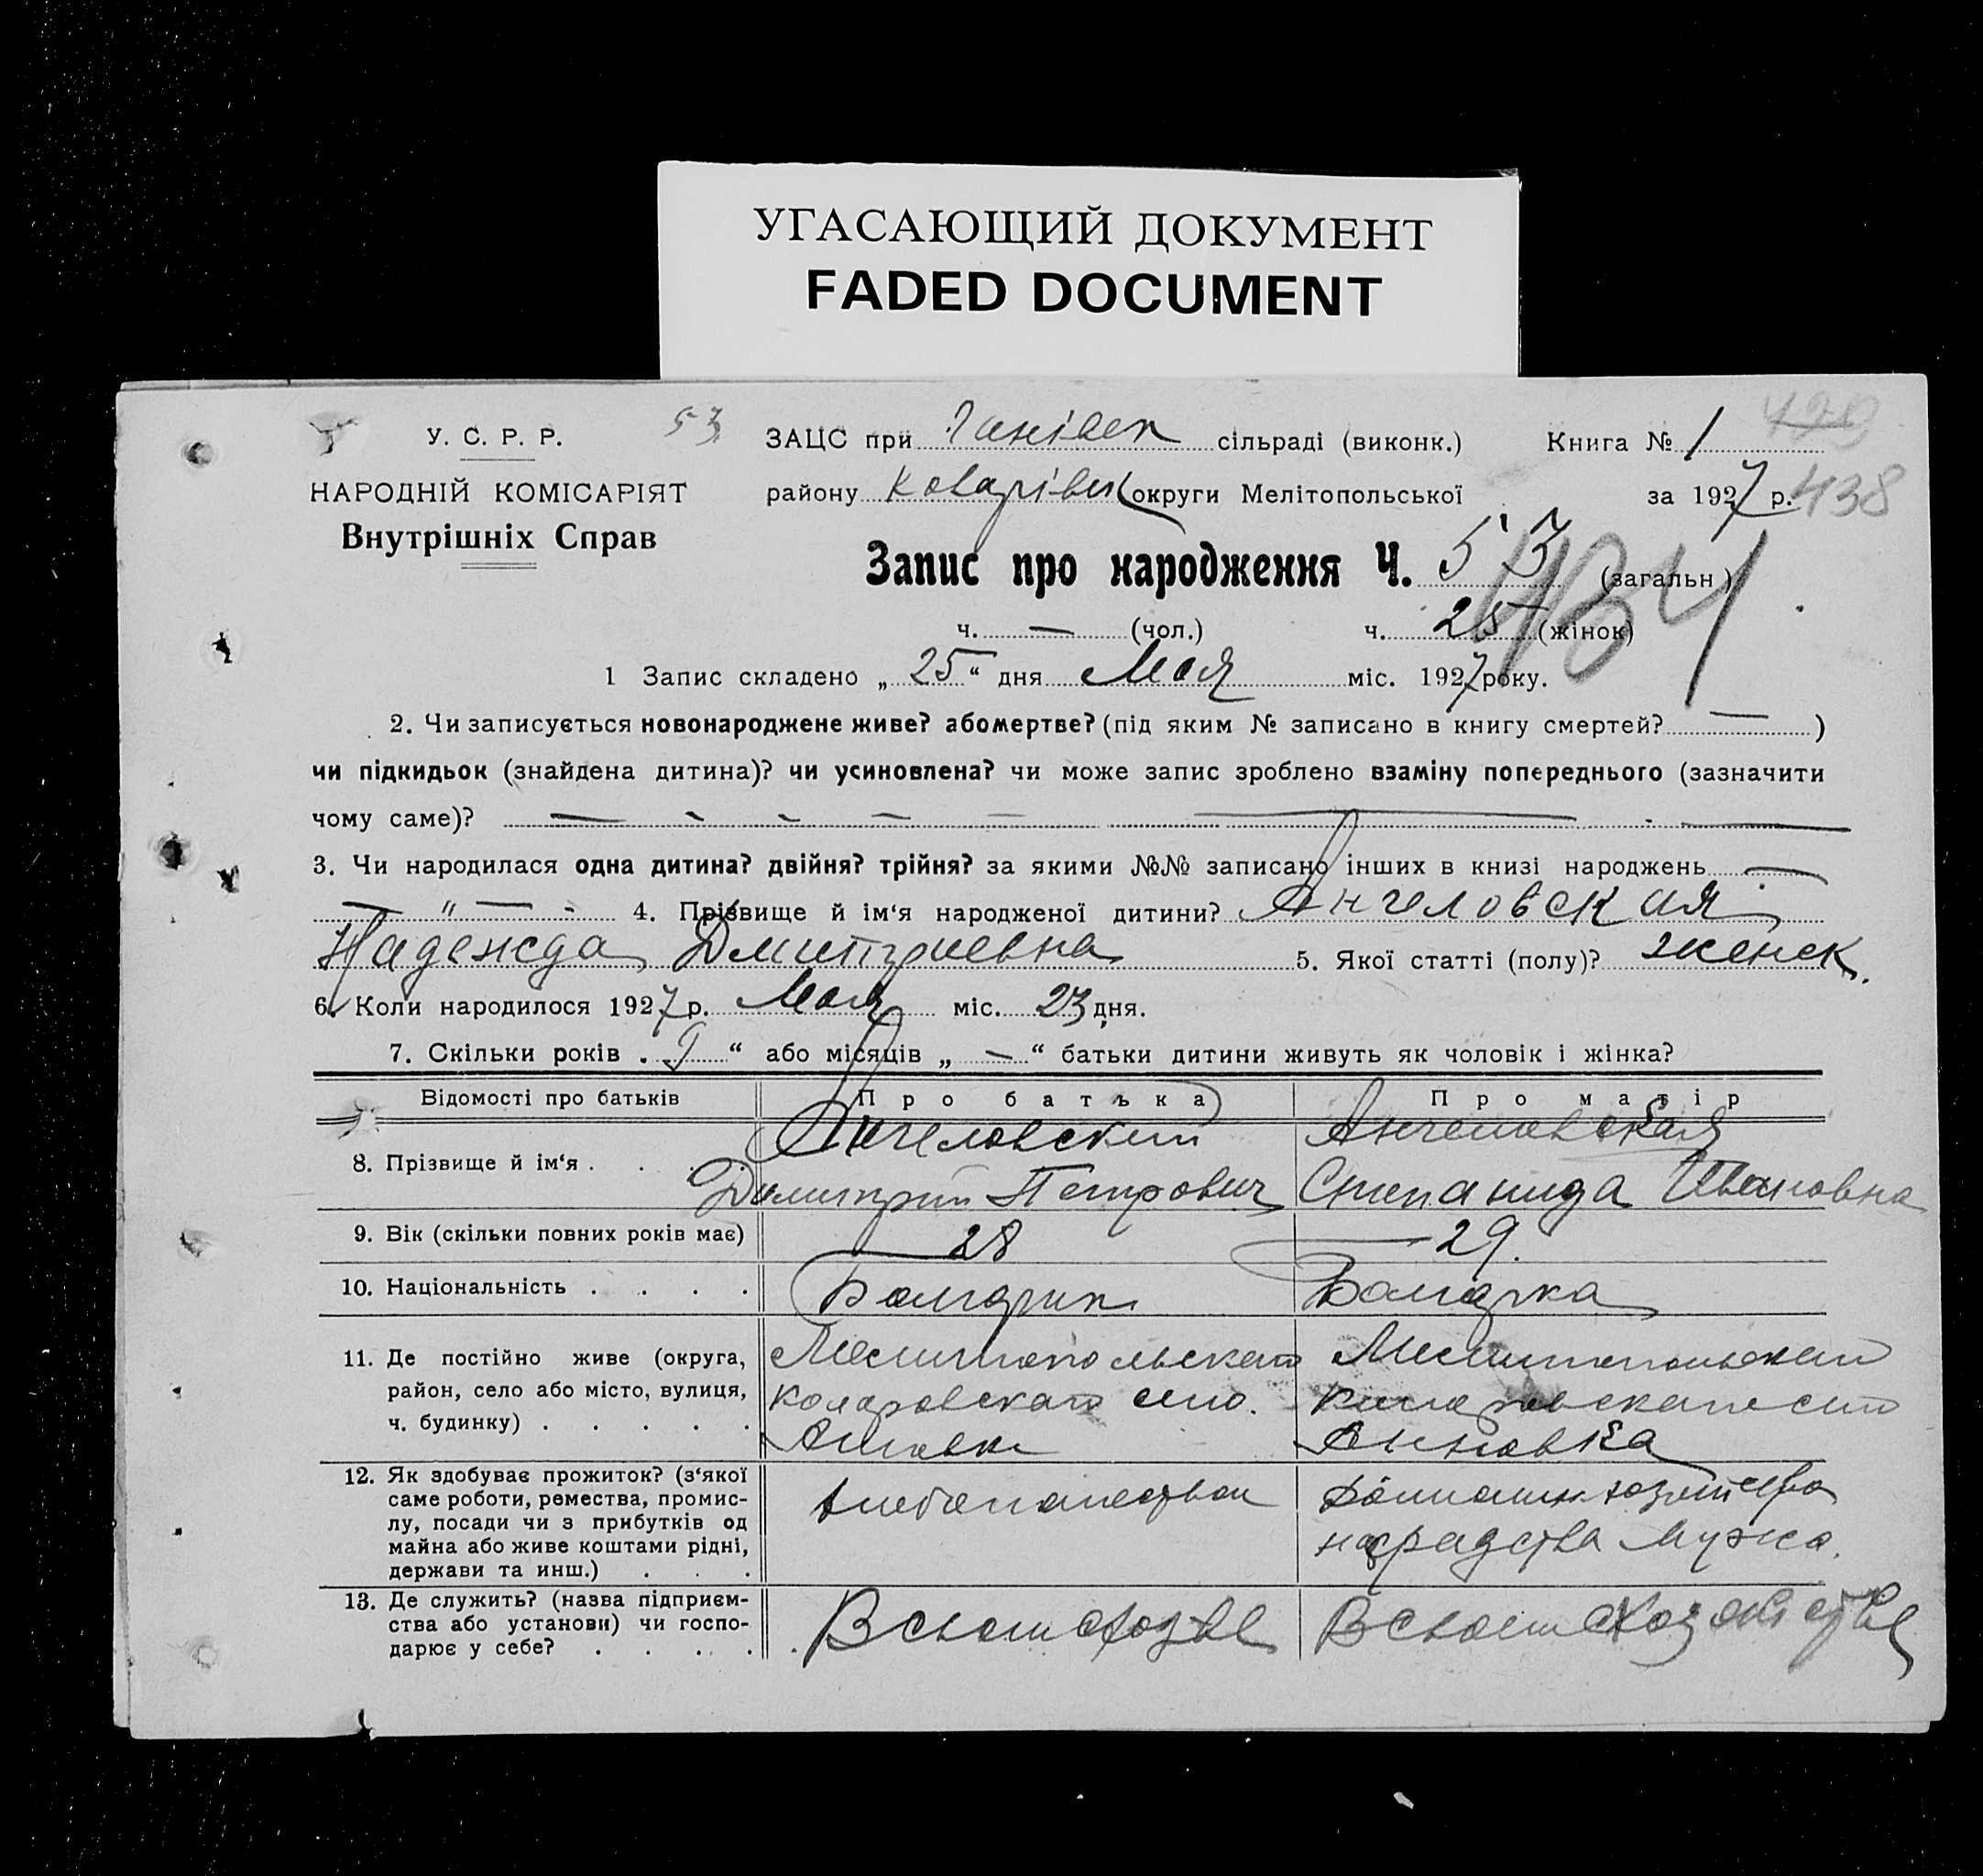 УГАСАЮЩИЙ ДОКУМЕНТ
FADED DOCUMENT
У. С. Р. Р.
НАРОДНІЙ КОМІСАРІЯТ
Внутрішніх Справ
53
ЗАЦС при Ганівск сільраді (виконк.) Книга № 1
району округи Мелітопольської за 1927 р. 438
Запис про народження Ч. 53 (загальн)
434
ч. — (чол.) ч. 25 (жінок)
1 Запис складено „ 25 “ дня Мая міс. 1927 року.
2. Чи записується новонароджене живе? або мертве? (під яким № записано в книгу смертей? — )
чи підкидьок (знайдена дитина)? чи усиновлена? чи може запис зроблено взаміну попереднього (зазначити
чому саме)? — — — — — — —
3. Чи народилася одна дитина? двійня? трійня? за якими №№ записано інших в книзі народжень —
— " — - 4. Прізвище й ім‘я народженої дитини? Ангеловская
Надежда Дмитриевна 5. Якої статті (полу)? женск.
6. Коли народилося 1927 р. Мая міс. 23 дня.
7. Скільки років „ 9 “ або місяців „ — “ батьки дитини живуть як чоловік і жінка?
Відомості про батьків Про батька Про матір
8. Прізвище й ім‘я . . . .
Ангеловский
Димитрий Петрович
Ангеловская
Степанида Ивановна
9. Вік (скільки повних років має) 28 29.
10. Національність . . . . Болгарин Болгарка
11. Де постійно живе (округа,
район, село або місто, вулиця,
ч. будинку) . . . . .
Мелитопольской
Коларовскаго село.
Анновка
Мелитопольской
Коларовскаго село
Анновка
12. Як здобуває прожиток? (з‘якої
саме роботи, ремества, промис-
лу, посади чи з прибутків од
майна або живе коштами рідні,
держави та инш.) . . .
Хлебопашеством
Домашн. хозяйство
на средства мужа.
13. Де служить? (назва підприєм-
ства або установи) чи госпо-
дарює у себе? . . . . .
В своем хозве
В своем хозяйстве